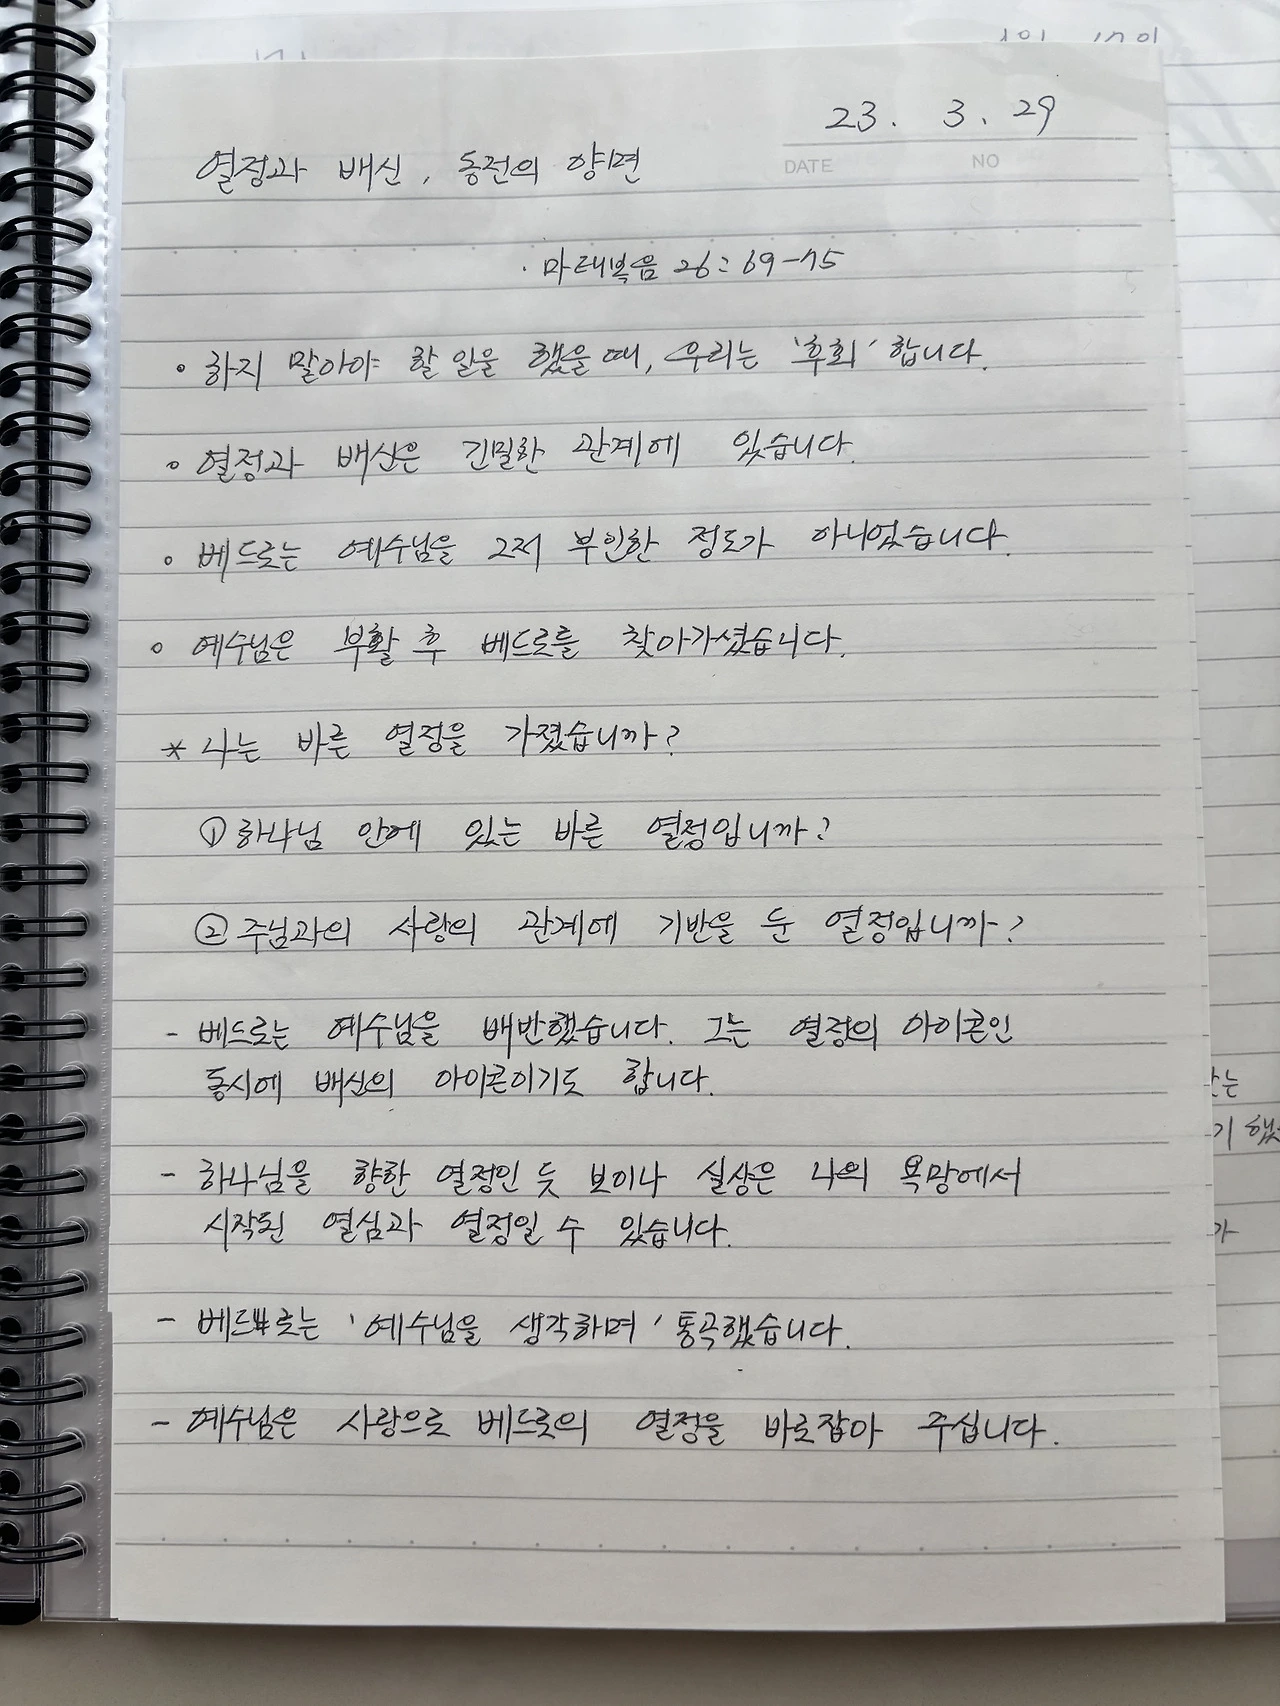 23. 3. 29
DATE NO
열정과 배신, 동전의 양면
· 마태복음 26: 69-75
· 하지 말아야 할 일을 했을 때, 우리는 '후회' 합니다.
· 열정과 배신은 긴밀한 관계에 있습니다.
· 베드로는 예수님을 그저 부인한 정도가 아니었습니다.
· 예수님은 부활 후 베드로를 찾아가셨습니다.
* 나는 바른 열정을 가졌습니까?
① 하나님 안에 있는 바른 열정입니까?
② 주님과의 사랑의 관계에 기반을 둔 열정입니까?
- 베드로는 예수님을 배반했습니다. 그는 열정의 아이콘인
동시에 배신의 아이콘이기도 합니다.
- 하나님을 향한 열정인 듯 보이나 실상은 나의 욕망에서
시작된 열심과 열정일 수 있습니다.
- 베드로는 '예수님을 생각하며' 통곡했습니다.
- 예수님은 사랑으로 베드로의 열정을 바로잡아 주십니다.
는
기 했
가